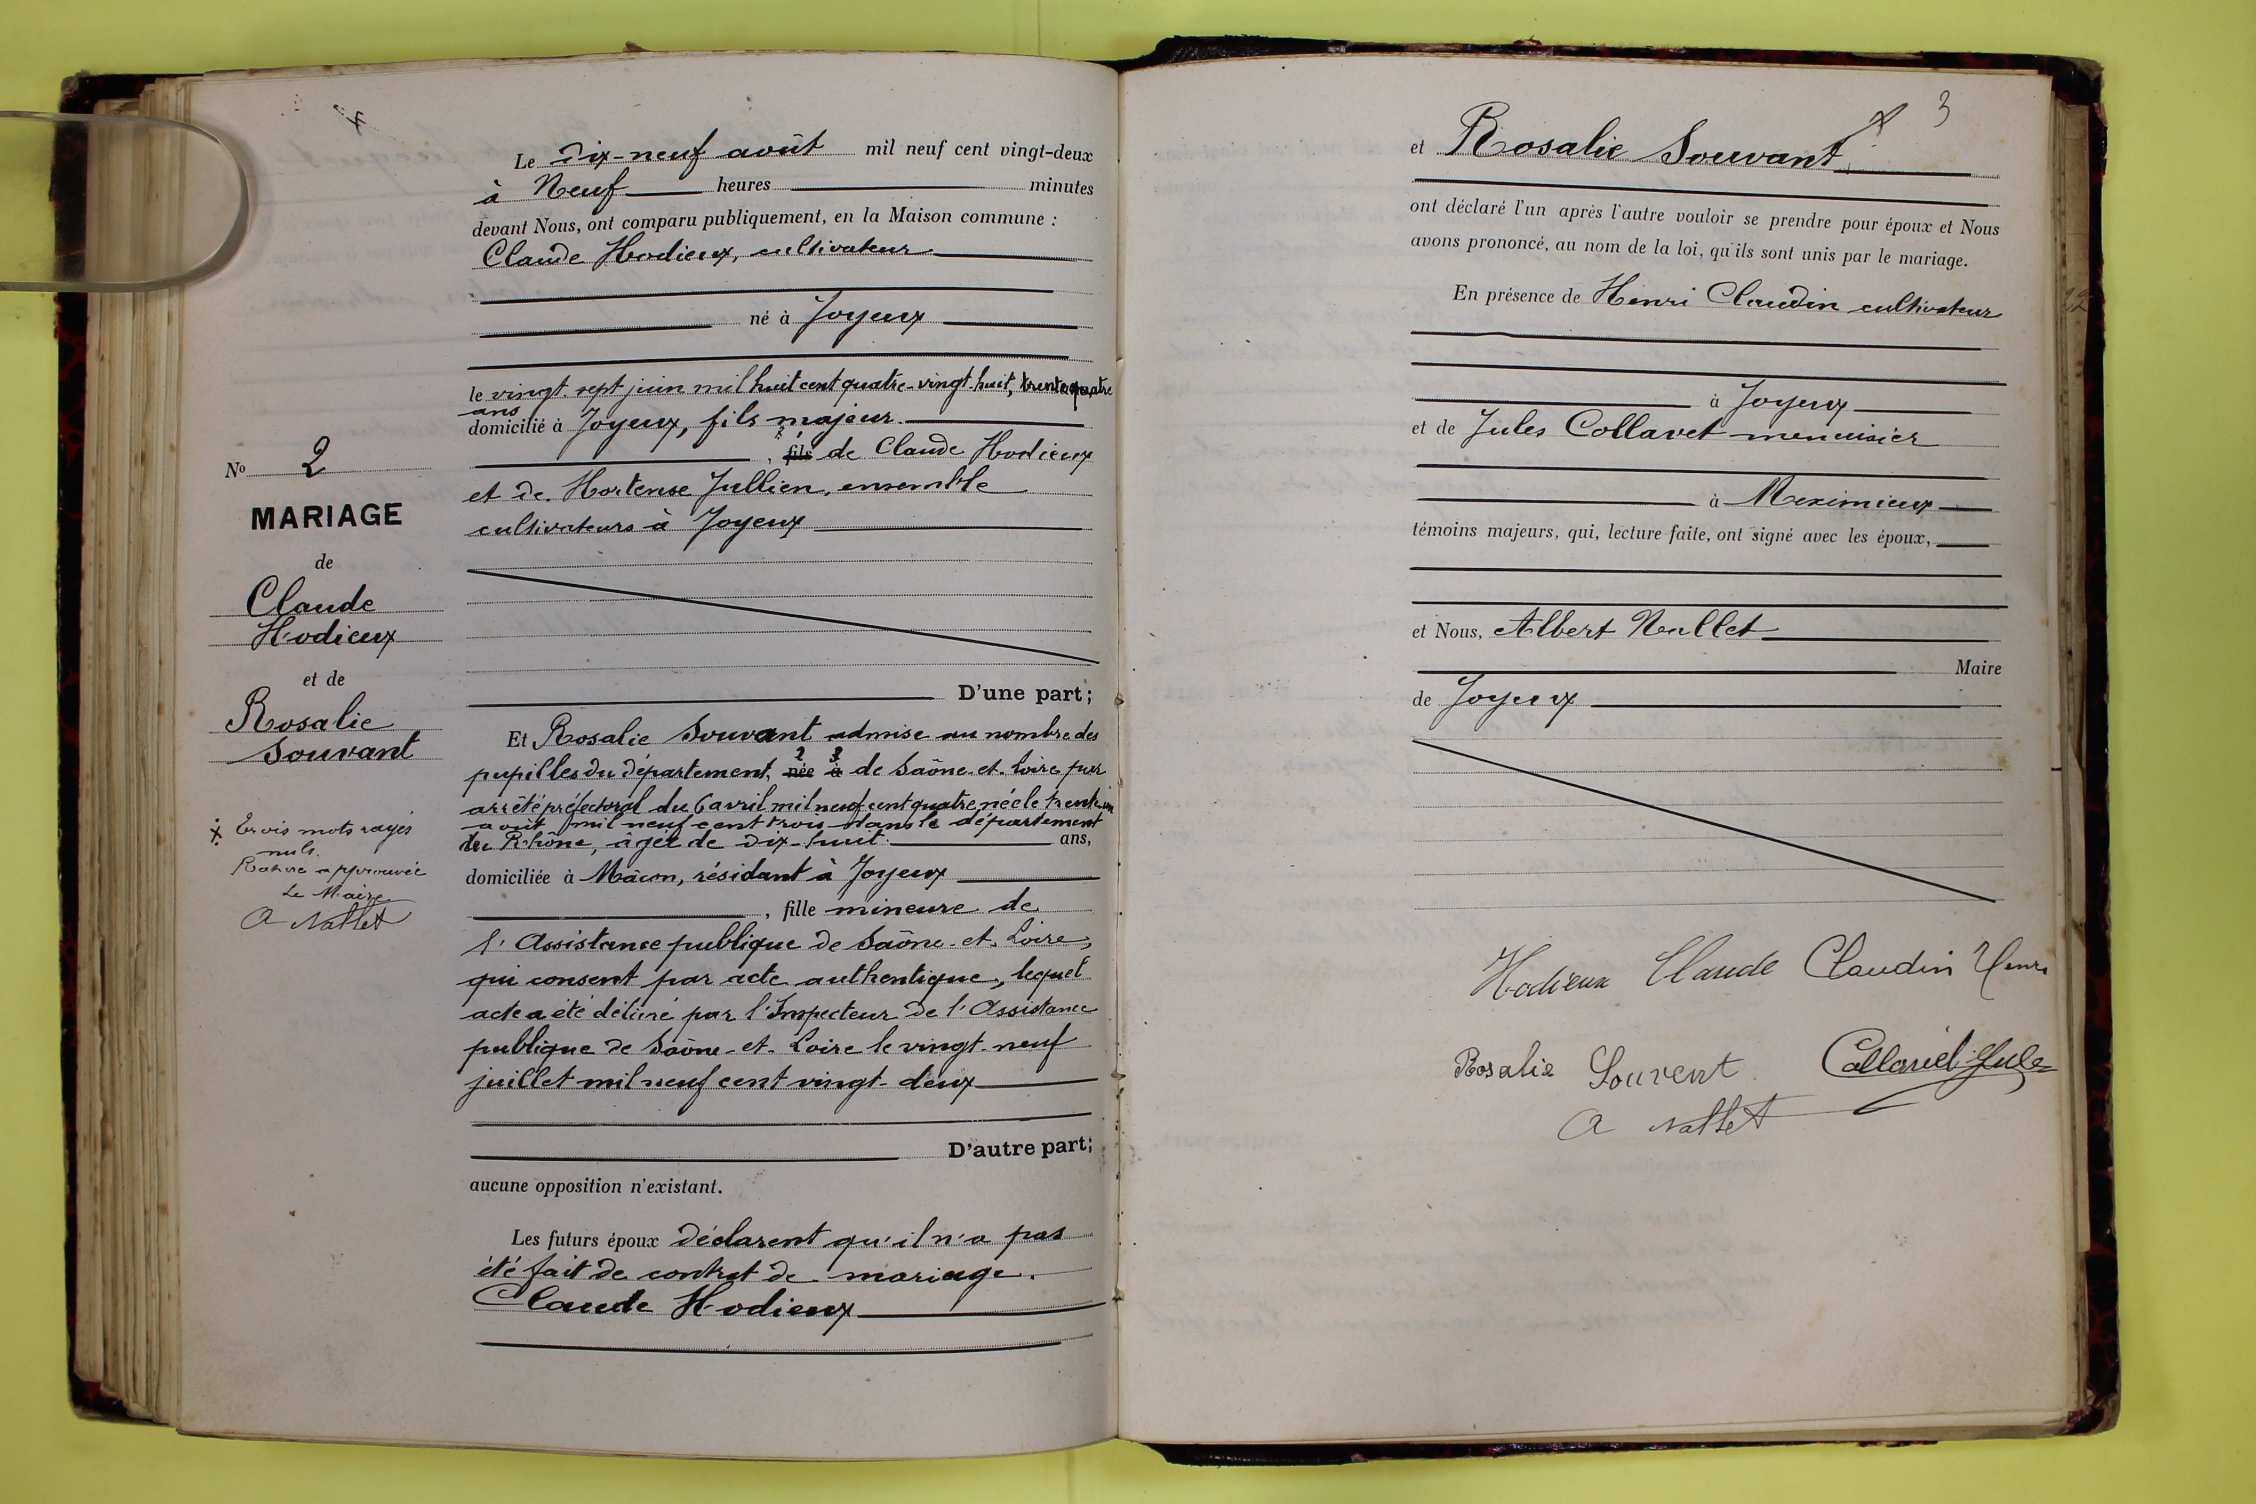 Le dix-neuf août mil neuf cent vingt-deux
à Neuf heures minutes
devant Nous, ont comparu publiquement, en la Maison commune :
Claude Hodieux, cultivateur
né à Joyeux
le vingt-sept juin mil huit cent quatre-vingt-huit, trente quatre
ans
domicilié à Joyeux, fils majeur
, fils de Claude Hodieux
et de Hortense Jullien, ensemble
cultivateurs à Joyeux
D'une part;
Et Rosalie Souvant admise au nombre des
pupilles du département, née à de Saône-et-Loire par
arrêté préfectoral du 6 avril mil neuf cent quatre née le trente-un
août mil neuf cent trois dans le département
du Rhône, âgée de dix-huit ans,
domiciliée à Mâcon, résidant à Joyeux
, fille mineure de
l'Assistance publique de Saône-et-Loire,
qui consent par acte authentique, lequel
acte a été délivré par l'Inspecteur de l'Assistance
publique de Saône-et-Loire le vingt-neuf
juillet mil neuf cent vingt-deux
D'autre part;
aucune opposition n'existant.
Les futurs époux déclarent qu'il n'a pas
été fait de contrat de mariage.
Claude Hodieux
No 2
MARIAGE
de
Claude
Hodieux
et de
Rosalie
Souvant
Trois mots rayés
nuls.
Rature approuvée
Le Maire
A Nallet
3
et Rosalie Souvant
ont déclaré l'un après l'autre vouloir se prendre pour époux et Nous
avons prononcé, au nom de la loi, qu'ils sont unis par le mariage.
En présence de Henri Claudin cultivateur
à Joyeux
et de Jules Collavet menuisier
à Meximieux
témoins majeurs, qui, lecture faite, ont signé avec les époux,
et Nous, Albert Nallet
Maire
de Joyeux
Hodieux Claude Claudin Henri
Rosalie Souvent Collavet Jules
A Nallet